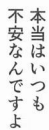 本当はいつも
不安なんですよ